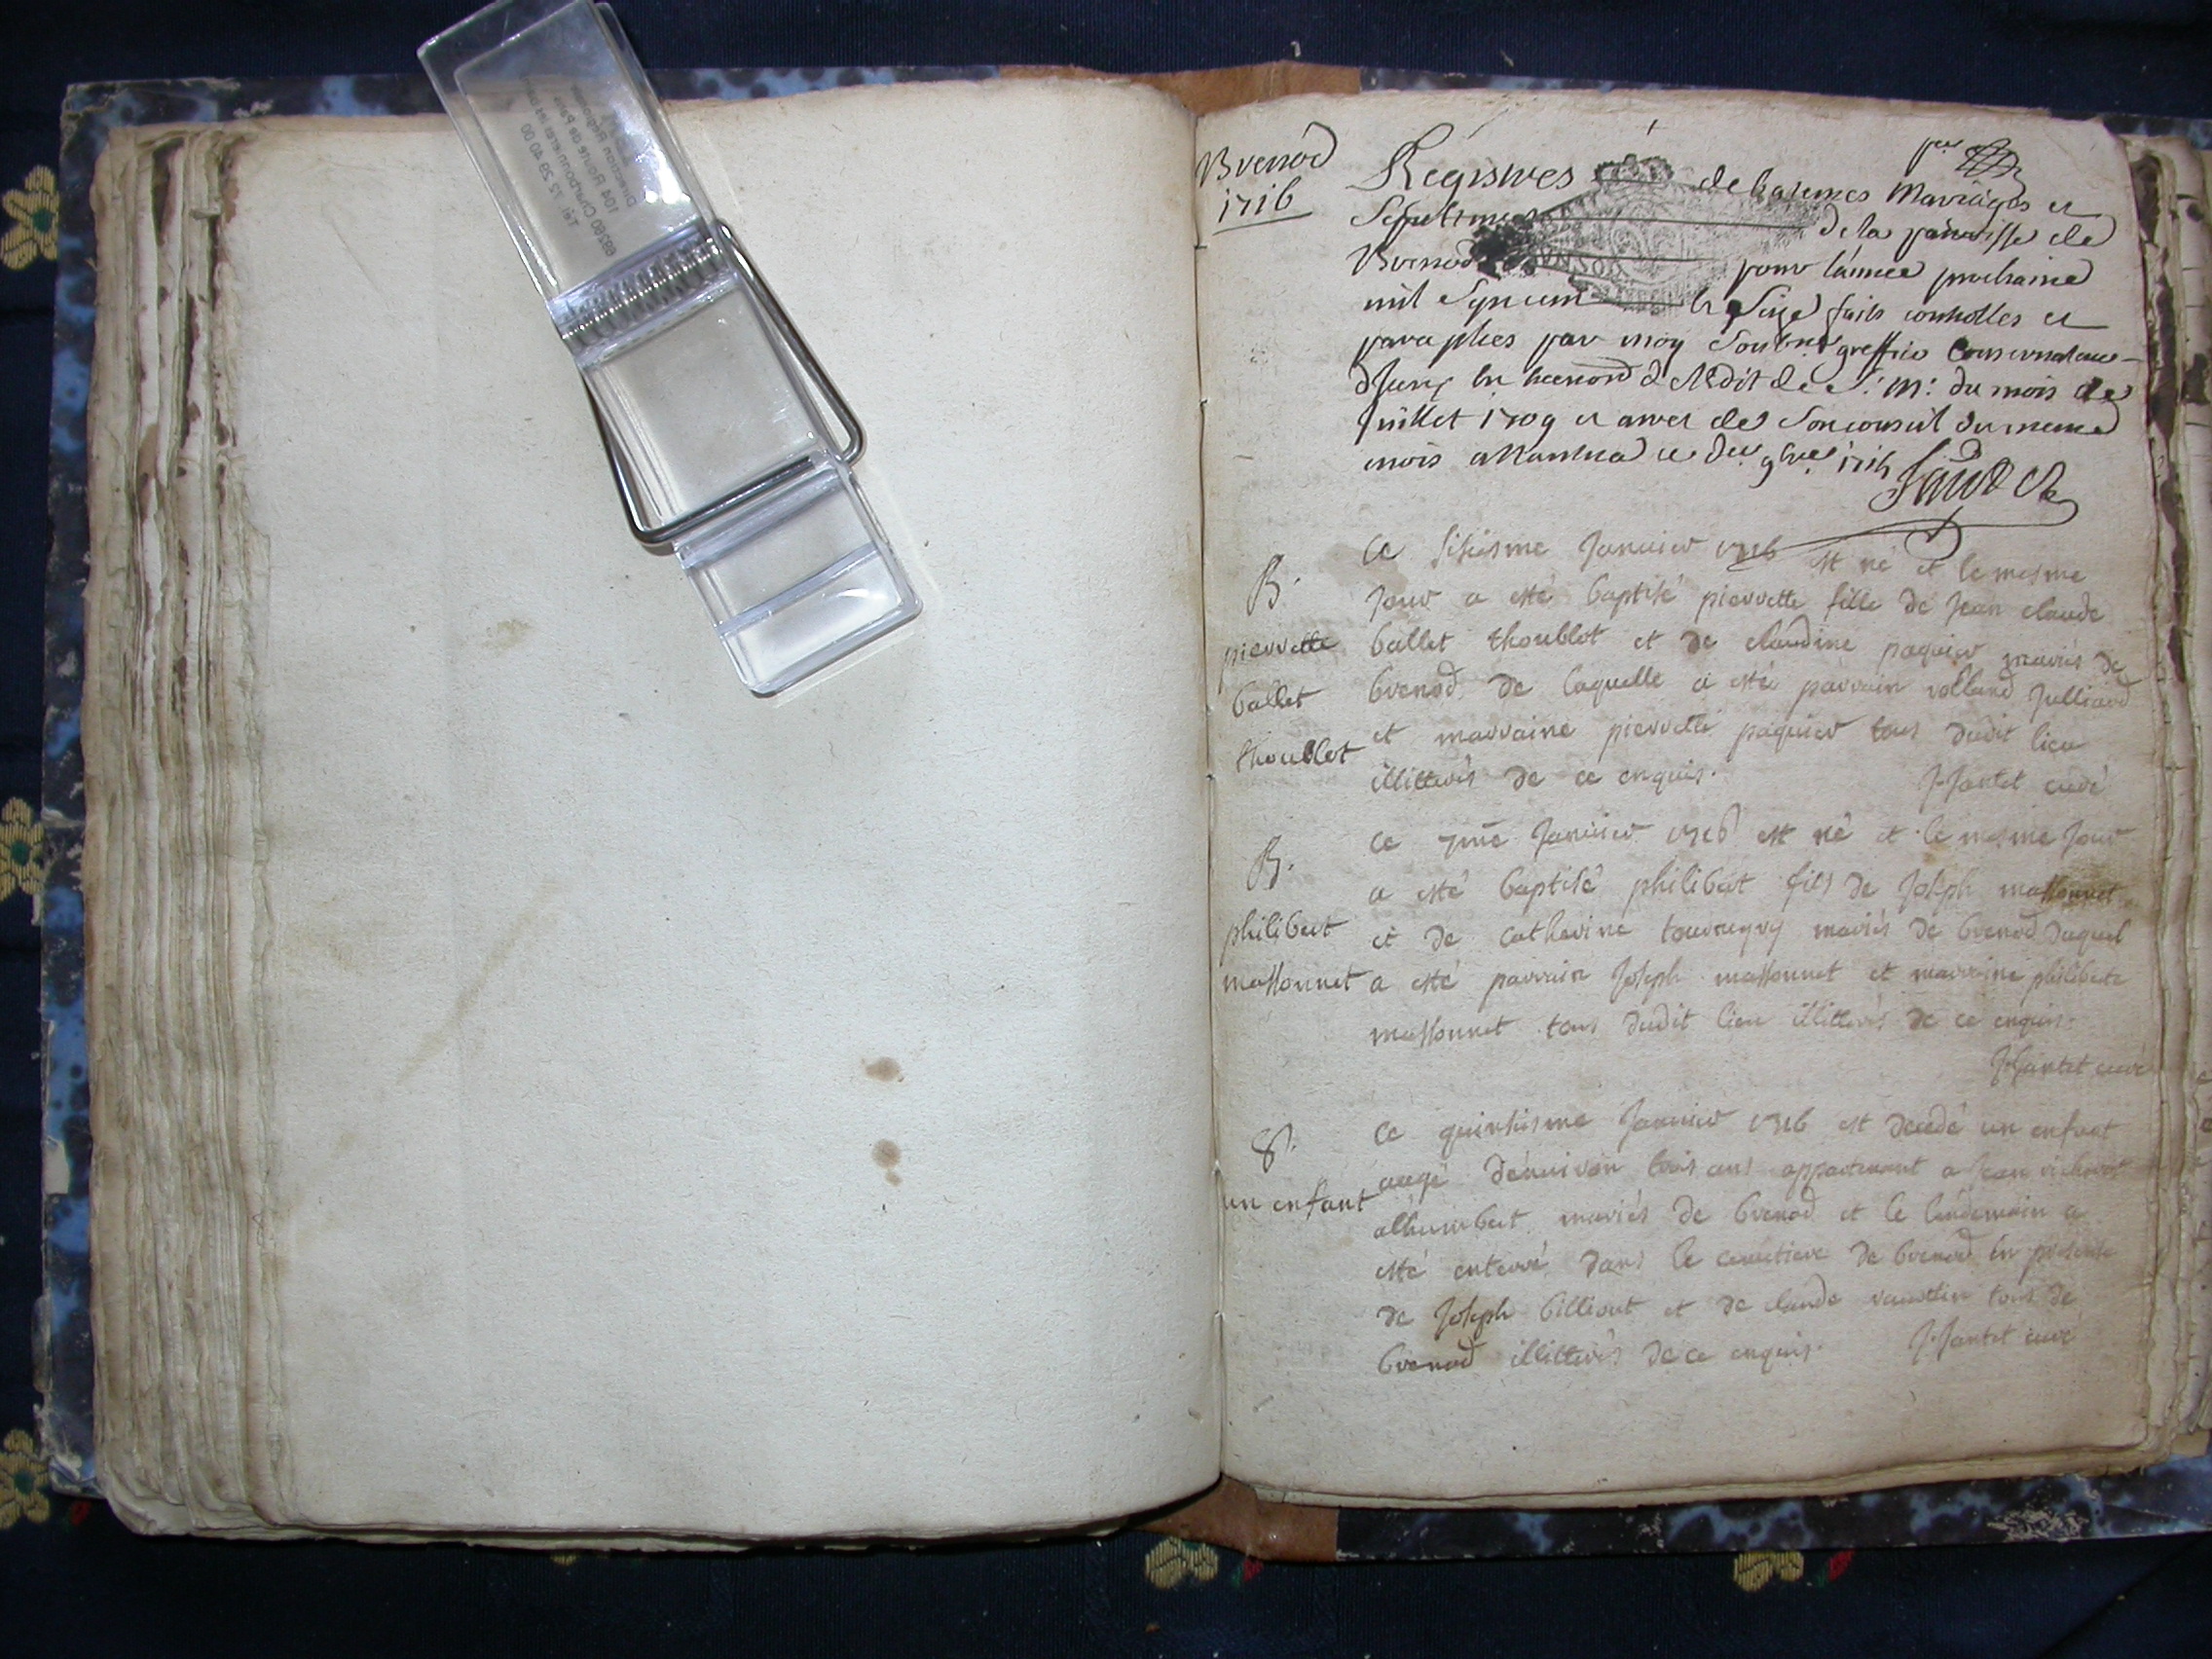 Brenod
1716
Registres de batemes Mariages et
Sepultures de la paroisse de
Brenod pour lannee prochaine
mil Sept cent Seize faits
paraphes par moy greffier
en de Ledit de S. M. du mois de
Juillet 1709 et arret de Son conseil du meme
mois a ce
B.
pierrette
ballet
thoublot
Ce sisiesme Januier 1716 est né et le mesme
Jour a esté baptisé pierrette fille de Jean claude
ballet thoublot et de claudine paquier mariés de
brenod de laquelle a esté parrain rolland Julliard
et marraine pierrette paquier tous dudit lieu
illitterés de ce enquis.
J Jantet curé
B.
philibert
massonnet
Ce 7me Januier 1716 est né et le mesme Jour
a esté baptisé philibert fils de Joseph massonnet
et de catherine mariés de brenod duquel
a esté parrain Joseph massonnet et marraine philiberte
massonnet tous dudit lieu illitterés de ce enquis.
J Jantet curé
S.
un enfant
Ce quinsiesme Januier 1716 est decedé un enfant
aagé denuiron trois ans appartenant a Jean
alhumbert mariés de brenod et le lendemain a
esté enterré dans le cemetiere de brenod en presence
de Joseph billiout et de claude tous de
brenod illitterés de ce enquis.
J Jantet curé
Direction Régionale
104 Route de Paris